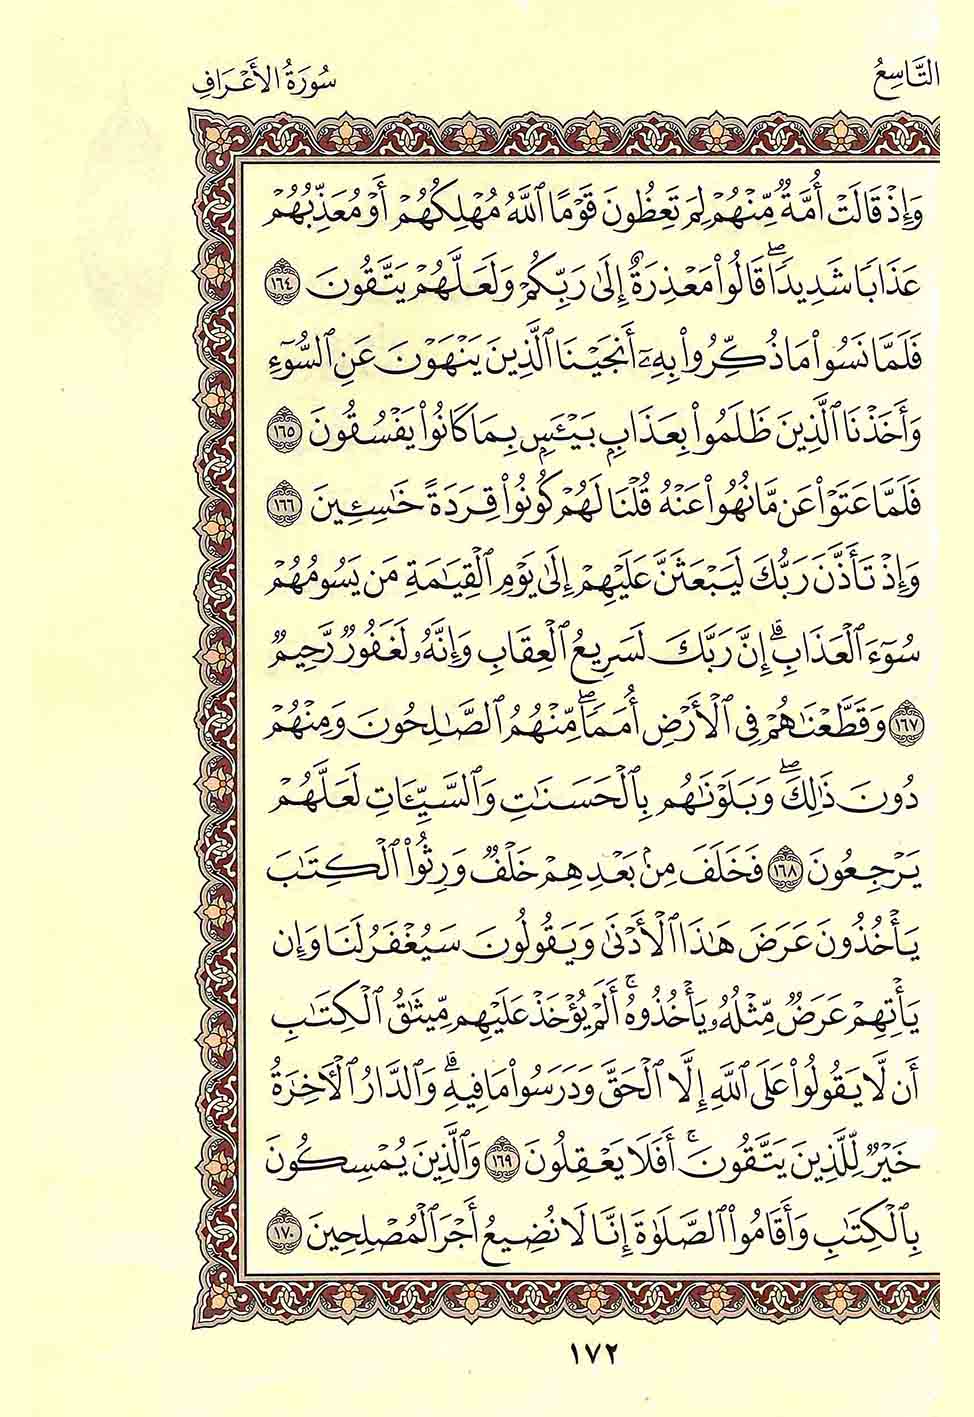 التَّاسِعُ
سُورَةُ الأَعْرَافِ
وَإِذْ قَالَتْ أُمَّةٌ مِّنْهُمْ لِمَ تَعِظُونَ قَوْمًا ٱللَّهُ مُهْلِكُهُمْ أَوْ مُعَذِّبُهُمْ
عَذَابًا شَدِيدًاۖ قَالُوا۟ مَعْذِرَةً إِلَىٰ رَبِّكُمْ وَلَعَلَّهُمْ يَتَّقُونَ ١٦٤
فَلَمَّا نَسُوا۟ مَا ذُكِّرُوا۟ بِهِۦٓ أَنجَيْنَا ٱلَّذِينَ يَنْهَوْنَ عَنِ ٱلسُّوٓءِ
وَأَخَذْنَا ٱلَّذِينَ ظَلَمُوا۟ بِعَذَابٍۭ بَـِٔيسٍۭ بِمَا كَانُوا۟ يَفْسُقُونَ ١٦٥
فَلَمَّا عَتَوْا۟ عَن مَّا نُهُوا۟ عَنْهُ قُلْنَا لَهُمْ كُونُوا۟ قِرَدَةً خَـٰسِـِٔينَ ١٦٦
وَإِذْ تَأَذَّنَ رَبُّكَ لَيَبْعَثَنَّ عَلَيْهِمْ إِلَىٰ يَوْمِ ٱلْقِيَـٰمَةِ مَن يَسُومُهُمْ
سُوٓءَ ٱلْعَذَابِۗ إِنَّ رَبَّكَ لَسَرِيعُ ٱلْعِقَابِ وَإِنَّهُۥ لَغَفُورٌ رَّحِيمٌ
١٦٧ وَقَطَّعْنَـٰهُمْ فِى ٱلْأَرْضِ أُمَمًاۖ مِّنْهُمُ ٱلصَّـٰلِحُونَ وَمِنْهُمْ
دُونَ ذَٰلِكَۖ وَبَلَوْنَـٰهُم بِٱلْحَسَنَـٰتِ وَٱلسَّيِّـَٔاتِ لَعَلَّهُمْ
يَرْجِعُونَ ١٦٨ فَخَلَفَ مِنۢ بَعْدِهِمْ خَلْفٌ وَرِثُوا۟ ٱلْكِتَـٰبَ
يَأْخُذُونَ عَرَضَ هَـٰذَا ٱلْأَدْنَىٰ وَيَقُولُونَ سَيُغْفَرُ لَنَا وَإِن
يَأْتِهِمْ عَرَضٌ مِّثْلُهُۥ يَأْخُذُوهُۚ أَلَمْ يُؤْخَذْ عَلَيْهِم مِّيثَـٰقُ ٱلْكِتَـٰبِ
أَن لَّا يَقُولُوا۟ عَلَى ٱللَّهِ إِلَّا ٱلْحَقَّ وَدَرَسُوا۟ مَا فِيهِۗ وَٱلدَّارُ ٱلْـَٔاخِرَةُ
خَيْرٌ لِّلَّذِينَ يَتَّقُونَۚ أَفَلَا يَعْقِلُونَ ١٦٩ وَٱلَّذِينَ يُمَسِّكُونَ
بِٱلْكِتَـٰبِ وَأَقَامُوا۟ ٱلصَّلَوٰةَ إِنَّا لَا نُضِيعُ أَجْرَ ٱلْمُصْلِحِينَ ١٧٠
١٧٢